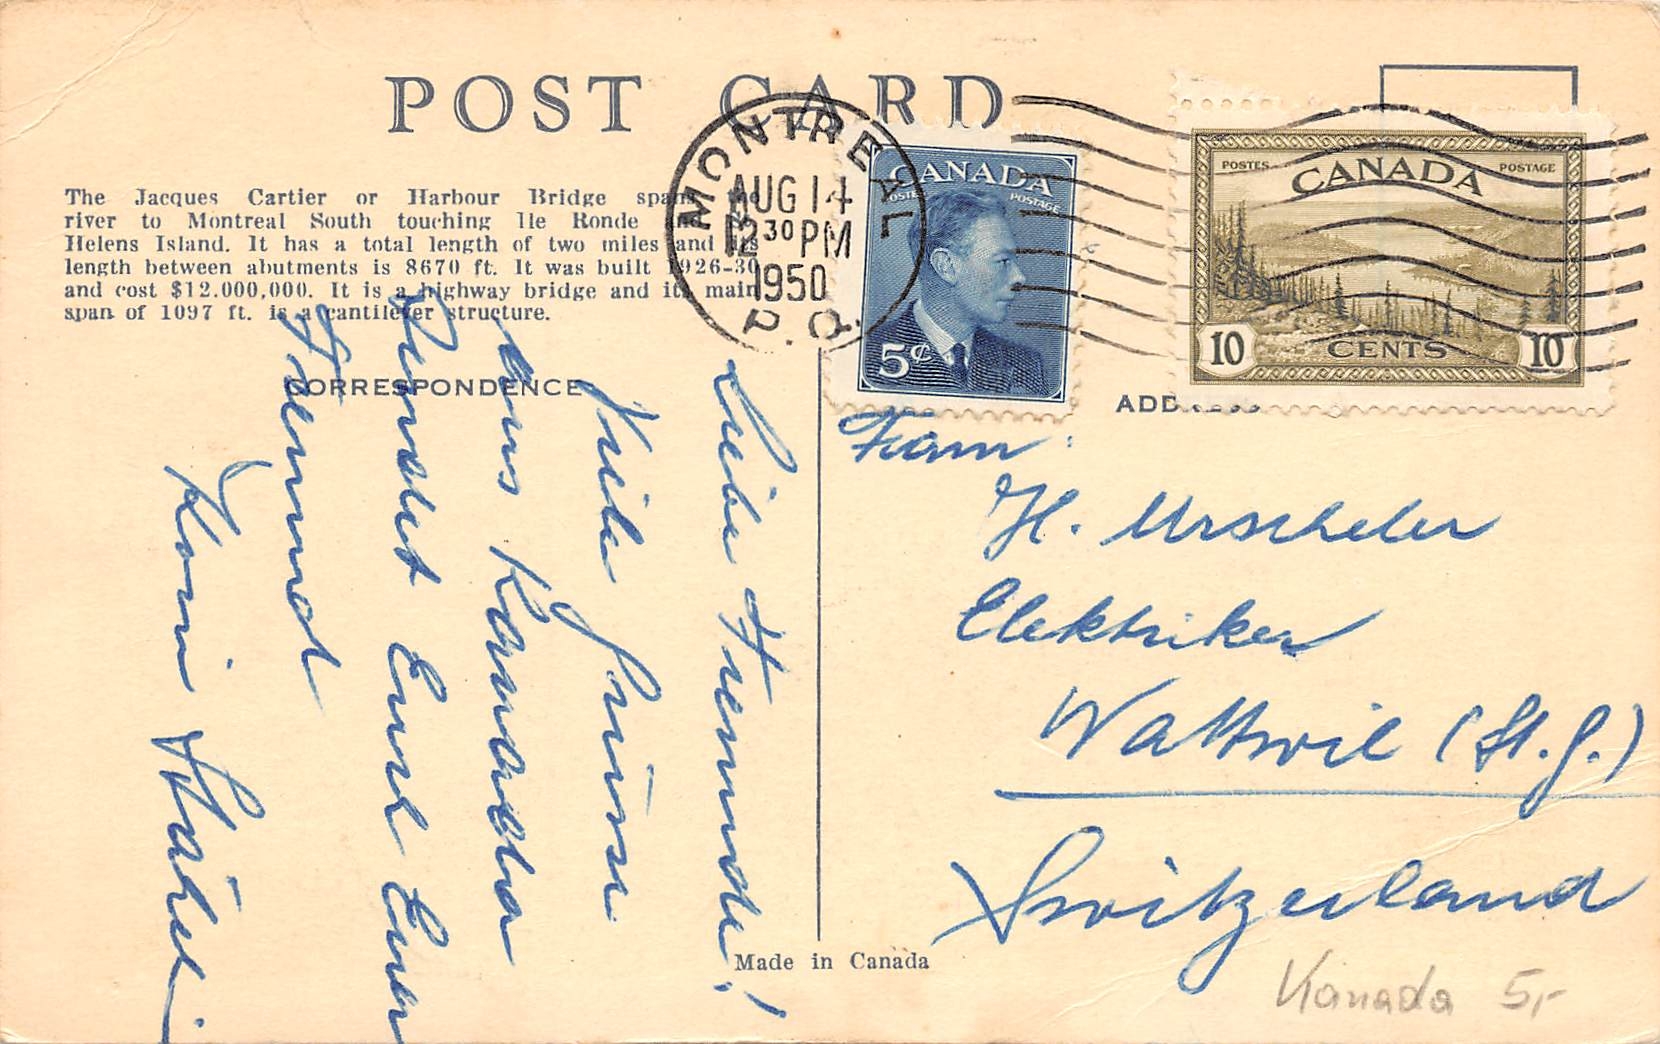 POST CARD
The Jacques Cartier or Harbour Bridge spans
river to Montreal South touching Ile Ronde
Helens Island. It has a total length of two miles and its
length between abutments is 8670 ft. It was built 1926-30
and cost $12.000,000. It is a highway bridge and its main
span of 1097 ft. is a cantilever structure.
CORRESPONDENCE
Liebe Freunde!
Viele Grüsse
aus Kanada
sendet Euch Euer
Freund
Koni
MONTREAL
AUG 14
12 30 PM
1950
P.Q.
CANADA
POSTES POSTAGE
5¢
POSTES POSTAGE
CANADA
10 CENTS 10
ADDRESS
Fam:
H. Urscheler
Elektriker
Wattwil (St. G.)
Switzerland
Made in Canada
Kanada 5,-